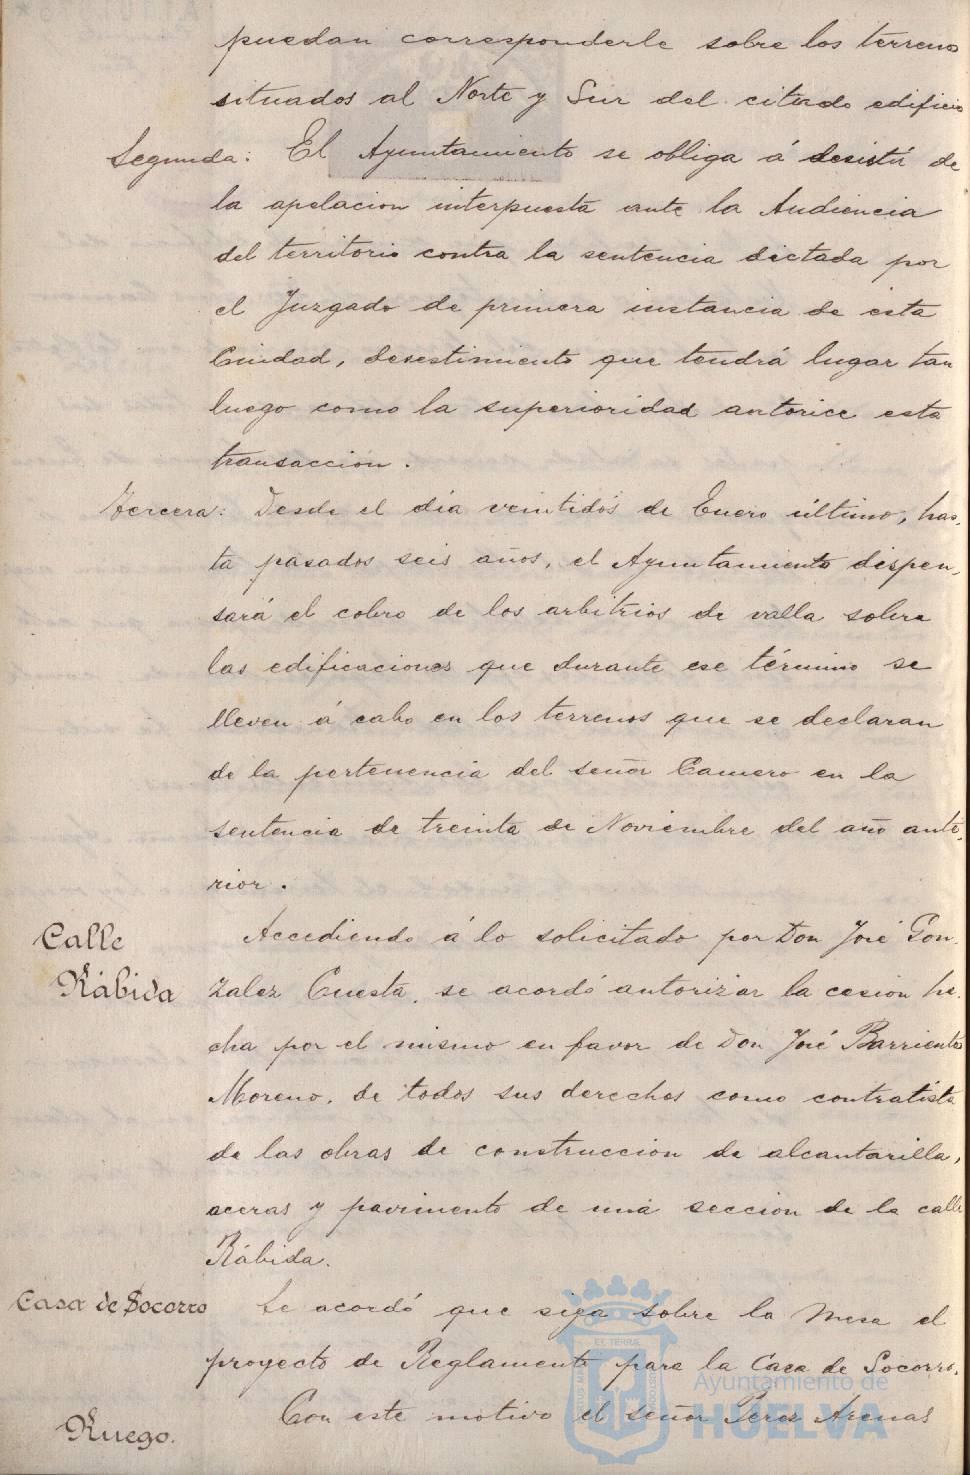 puedan corresponderle sobre los terrenos
situados al Norte y Sur del citado edificio
Segunda: El Ayuntamiento se obliga á desistir de
la apelacion interpuesta ante la Audiencia
del territorio contra la sentencia dictada por
el Juzgado de primera instancia de esta
Ciudad, desestimiento que tendrá lugar tan
luego como la superioridad autorice esta
transaccion.
Tercera: Desde el dia veintidós de Enero último, has-
ta pasados seis años, el Ayuntamiento dispen-
sará el cobro de los arbitrios de valla sobre
las edificaciones que durante ese término se
lleven á cabo en los terrenos que se declaran
de la pertenencia del señor Camero en la
sentencia de treinta de Noviembre del año ante-
rior.
Calle
Rábida
Accediendo á lo solicitado por Don José Gon-
zalez Cuesta, se acordó autorizar la cesion he-
cha por el mismo en favor de Don José Barrientos
Moreno, de todos sus derechos como contratista
de las obras de construccion de alcantarilla,
aceras y pavimento de una seccion de la calle
Rábida.
Casa de Socorro
Se acordó que siga sobre la Mesa el
proyecto de Reglamento para la Casa de Socorro.
Ruego.
Con este motivo el señor Perez Arenas
Ayuntamiento de
HUELVA